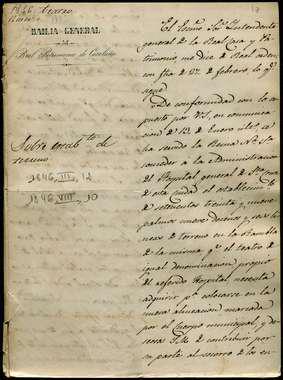 1846
BAILIA GENERAL
DEL
Real Patrimonio de Cataluña
Sobre establ.to de
terreno
1846, III, 12
1846, VIII, 10
El Excmo Sor. Intendente
general de la Real Casa y Pa-
trimonio, me dice de Real orden
en fha de 27 de febrero lo q.e
sigue
De conformidad con lo es-
puesto por VS. en comunica-
cion de 12 de Enero
ha servido la Reina Ntra Sra
conceder á la Administracion
del Hospital general de
de esta ciudad el establecim.to
de setecientos treinta y nueve
palmos nueve decimos y seis li-
neas de terreno en la Rambla
de la misma q.e el teatro de
igual denominacion propio
del referido Hospital necesita
adquirir p.a colocarse en la
nueva alineacion marcada
por el Cuerpo municipal, y de-
seosa S.M. de contribuir por
su parte al socorro de los en-